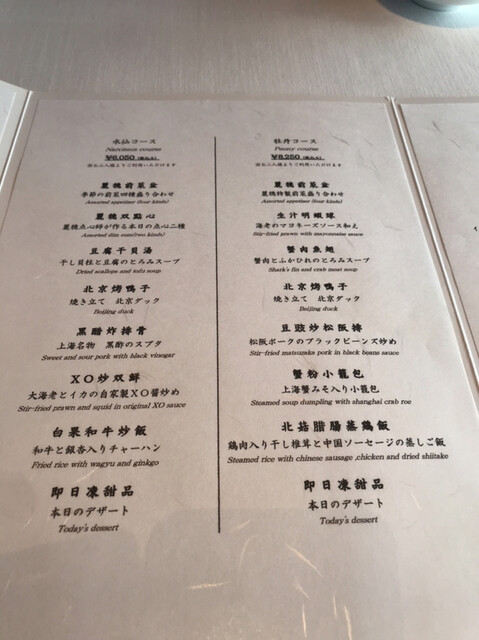 水仙コース
Narcissus course
¥6,050 (税込み)
※お二人様よりご利用いただけます
麗穂前菜盆
季節の前菜四種盛り合わせ
Assorted appetiser (four kinds)
麗穂双點心
麗穂点心師が作る本日の点心二種
Assorted dim sum(two kinds)
豆腐干貝湯
干し貝柱と豆腐のとろみスープ
Dried scallops and tofu soup
北京烤鴨子
焼き立て 北京ダック
Beijing duck
黒醋炸排骨
上海名物 黒酢のスブタ
Sweet and sour pork with black vinegar
XO炒双鮮
大海老とイカの自家製XO醤炒め
Stir-fried prawn and squid in original XO sauce
白果和牛炒飯
和牛と銀杏入りチャーハン
Fried rice with wagyu and ginkgo
即日凍甜品
本日のデザート
Today's dessert
牡丹コース
Peony course
¥8,250 (税込み)
※お二人様よりご利用いただけます
麗穂前菜盆
麗穂特製前菜盛り合わせ
Assorted appetiser (four kinds)
生汁明蝦球
海老のマヨネーズソース和え
Stir-fried prawn with mayonnaise sauce
蟹肉魚翅
蟹肉とふかひれのとろみスープ
Shark's fin and crab meat soup
北京烤鴨子
焼き立て 北京ダック
Beijing duck
豆豉炒松阪排
松阪ポークのブラックビーンズ炒め
Stir-fried matsuzaka pork in black beans sauce
蟹粉小籠包
上海蟹みそ入り小籠包
Steamed soup dumpling with shanghai crab roe
北菇腊腸蒸鶏飯
鶏肉入り干し椎茸と中国ソーセージの蒸しご飯
Steamed rice with chinese sausage ,chicken and dried shiitake
即日凍甜品
本日のデザート
Today's dessert